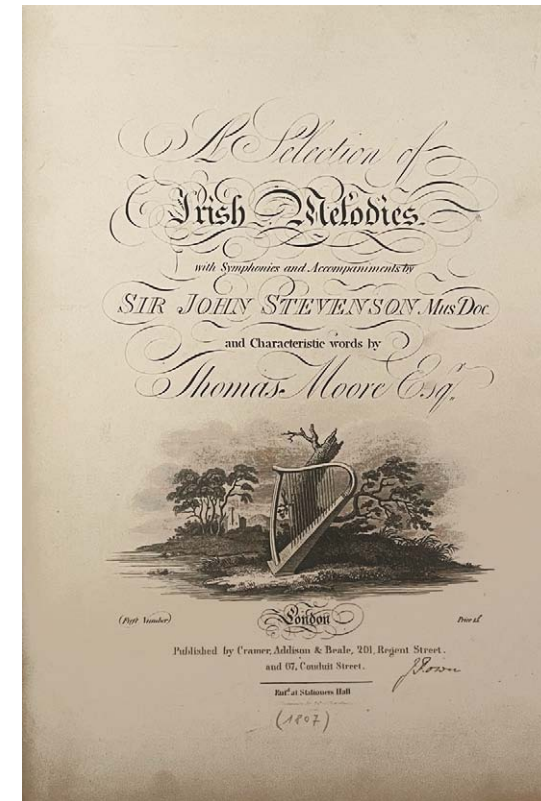 A Selection of
Irish Melodies.
with Symphonies and Accompaniments by
SIR JOHN STEVENSON Mus Doc.
and Characteristic words by
Thomas Moore Esqr.
(First Number)
London
Price
Published by Cramer, Addison & Beale, 201, Regent Street.
and 67, Conduit Street.
Entd. at Stationers Hall
(1807)